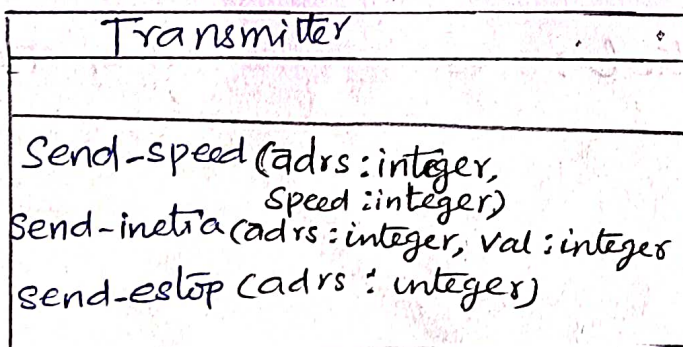 Transmitter
Send-speed (adrs : integer,
Speed : integer)
Send-inetia (adrs : integer, val : integer
send-estop (adrs : integer)